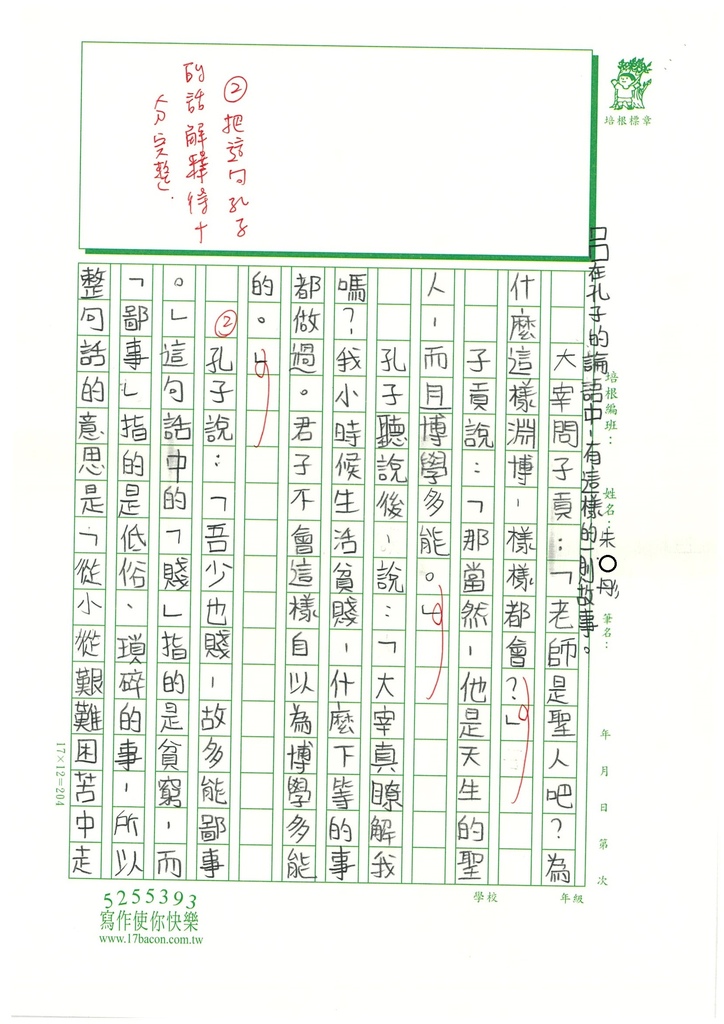 ②把這句孔子
的話解釋得十
分完整.
培根標章
在孔子的論語中，有這樣的一則故事。
培根編班：
姓名：朱〇彤
筆名：
年 月 日 第 次
太宰問子貢：「老師是聖人吧？為
什麼這樣淵博，樣樣都會？」
子貢說：「那當然，他是天生的聖
人，而且博學多能。」
孔子聽說後，說：「大宰真瞭解我
嗎？我小時候生活貧賤，什麼下等的事
都做過。君子不會這樣自以為博學多能
的。」
②
孔子說：「吾少也賤，故多能鄙事
。」這句話中的「賤」指的是貧窮，而
「鄙事」指的是低俗、瑣碎的事，所以
整句話的意思是「從小從艱難困苦中走
17×12=204
5255393
寫作使你快樂
www.17bacon.com.tw
學校
年級